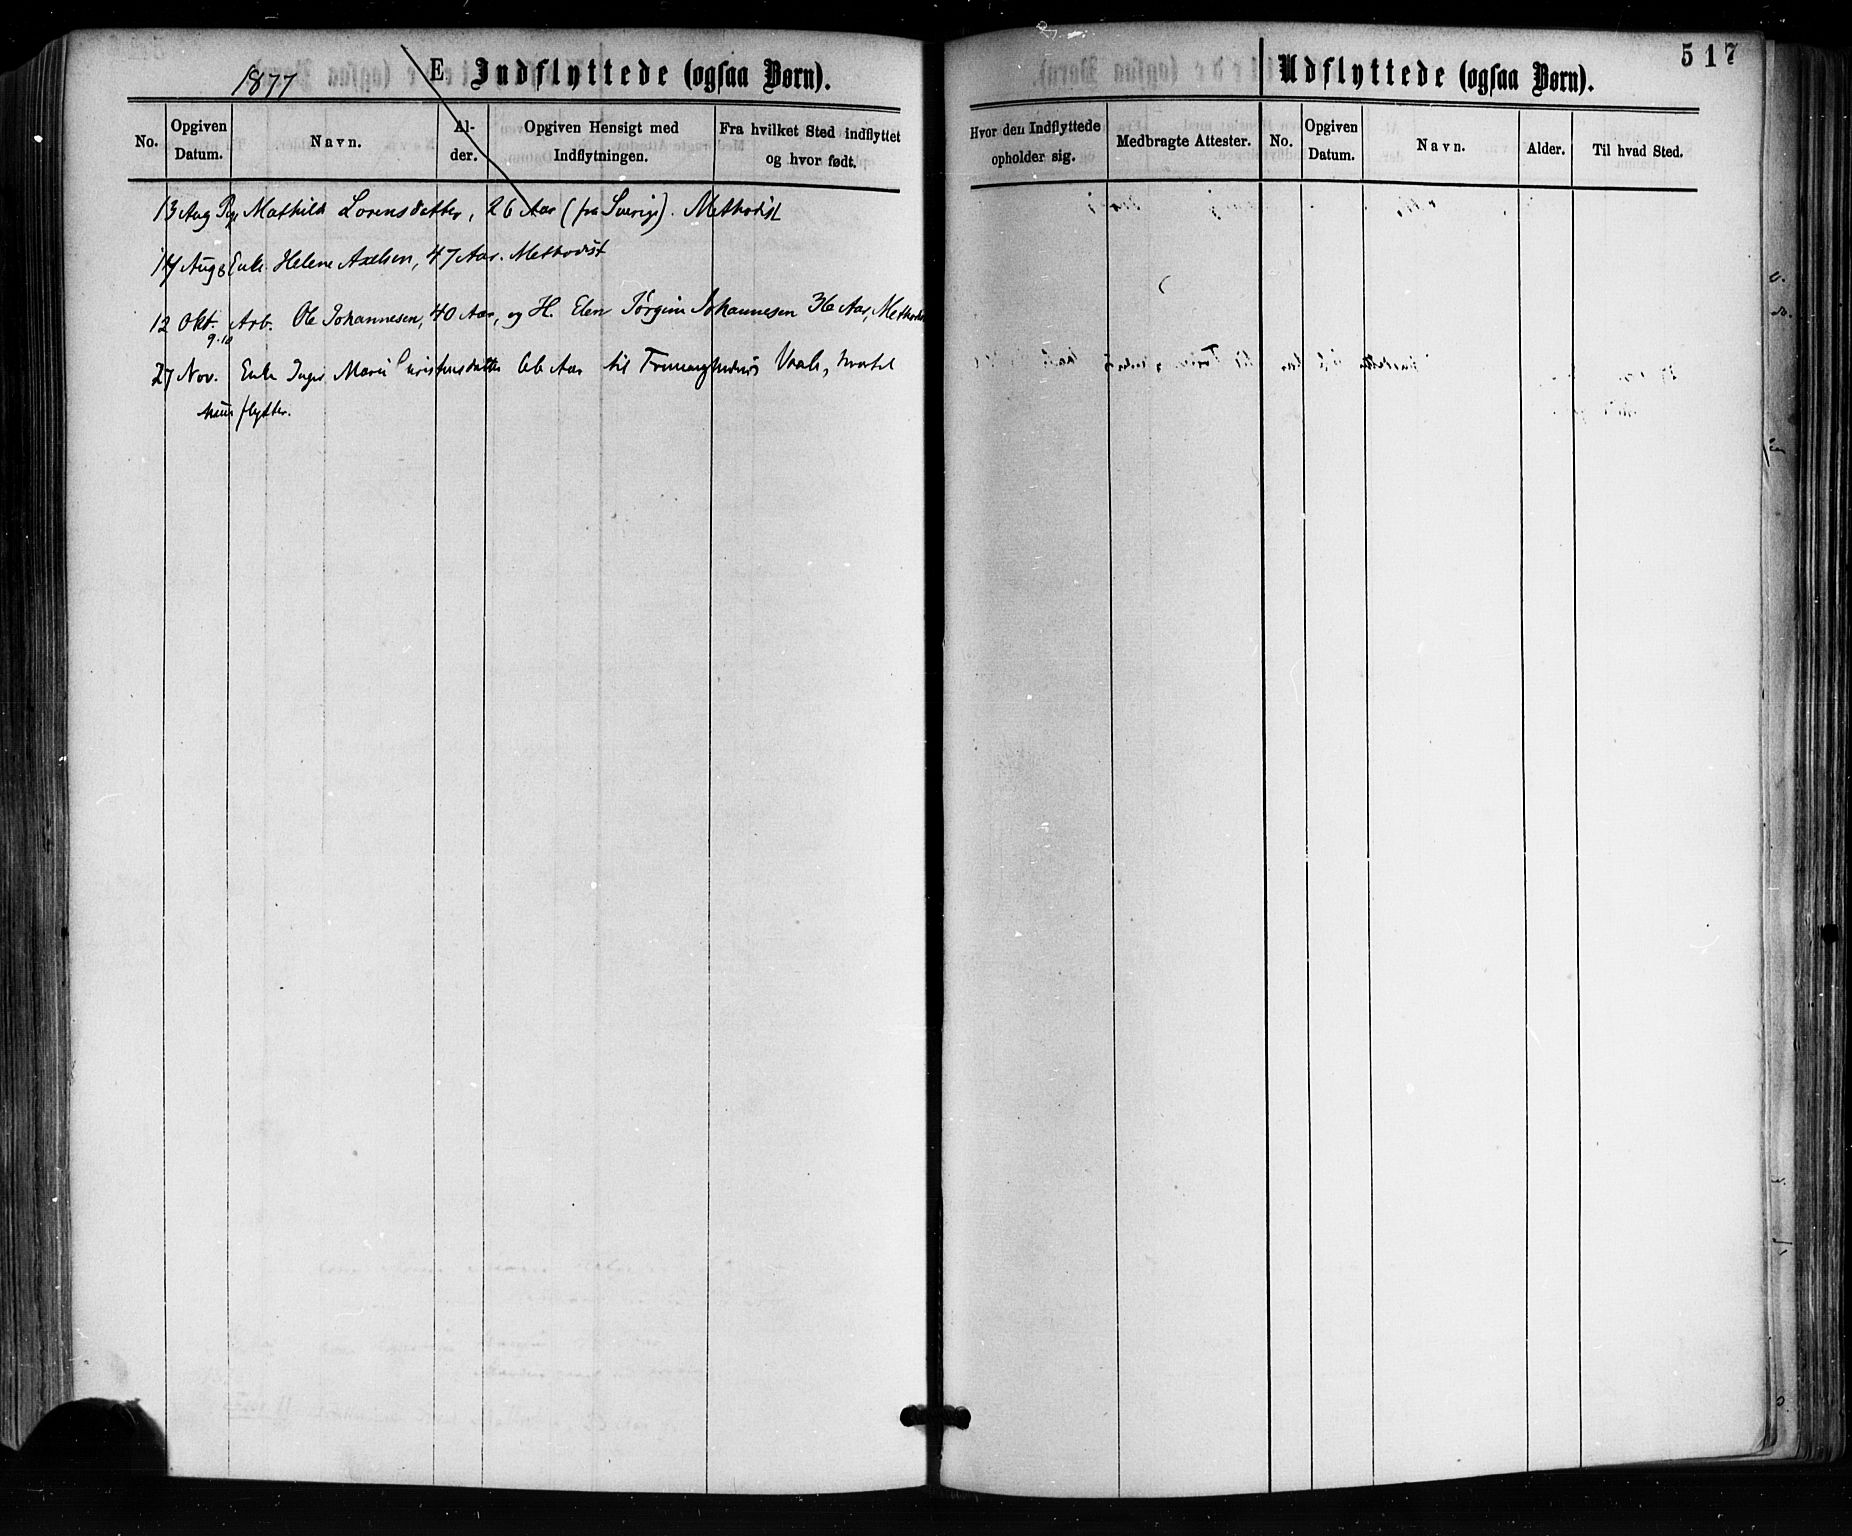 517
1877
E Indflyttede (ogsaa Børn).
Udflyttede (ogsaa Børn).
No. Opgiven Datum. Navn. Alder. Opgiven Hensigt med Indflytningen. Fra hvilket Sted indflyttet og hvor født.
Hvor den Indflyttede opholder sig. Medbragte Attester. No. Opgiven Datum. Navn. Alder. Til hvad Sted.
13 Aug Pge Mathilde Lorensdatter, 26 Aar (fra Sverige). Methodist
14 Aug Enke Helene Axelsen, 47 Aar. Methodist
12 Okt. Arb. Ole Johannesen, 40 Aar, og H. Elen Jørgine Johannesen 36 Aar, Methodist
9.10
27 Nov. Enke Inger Marie Christensdatter Aar til Vaale, hvortil
hun flytter.